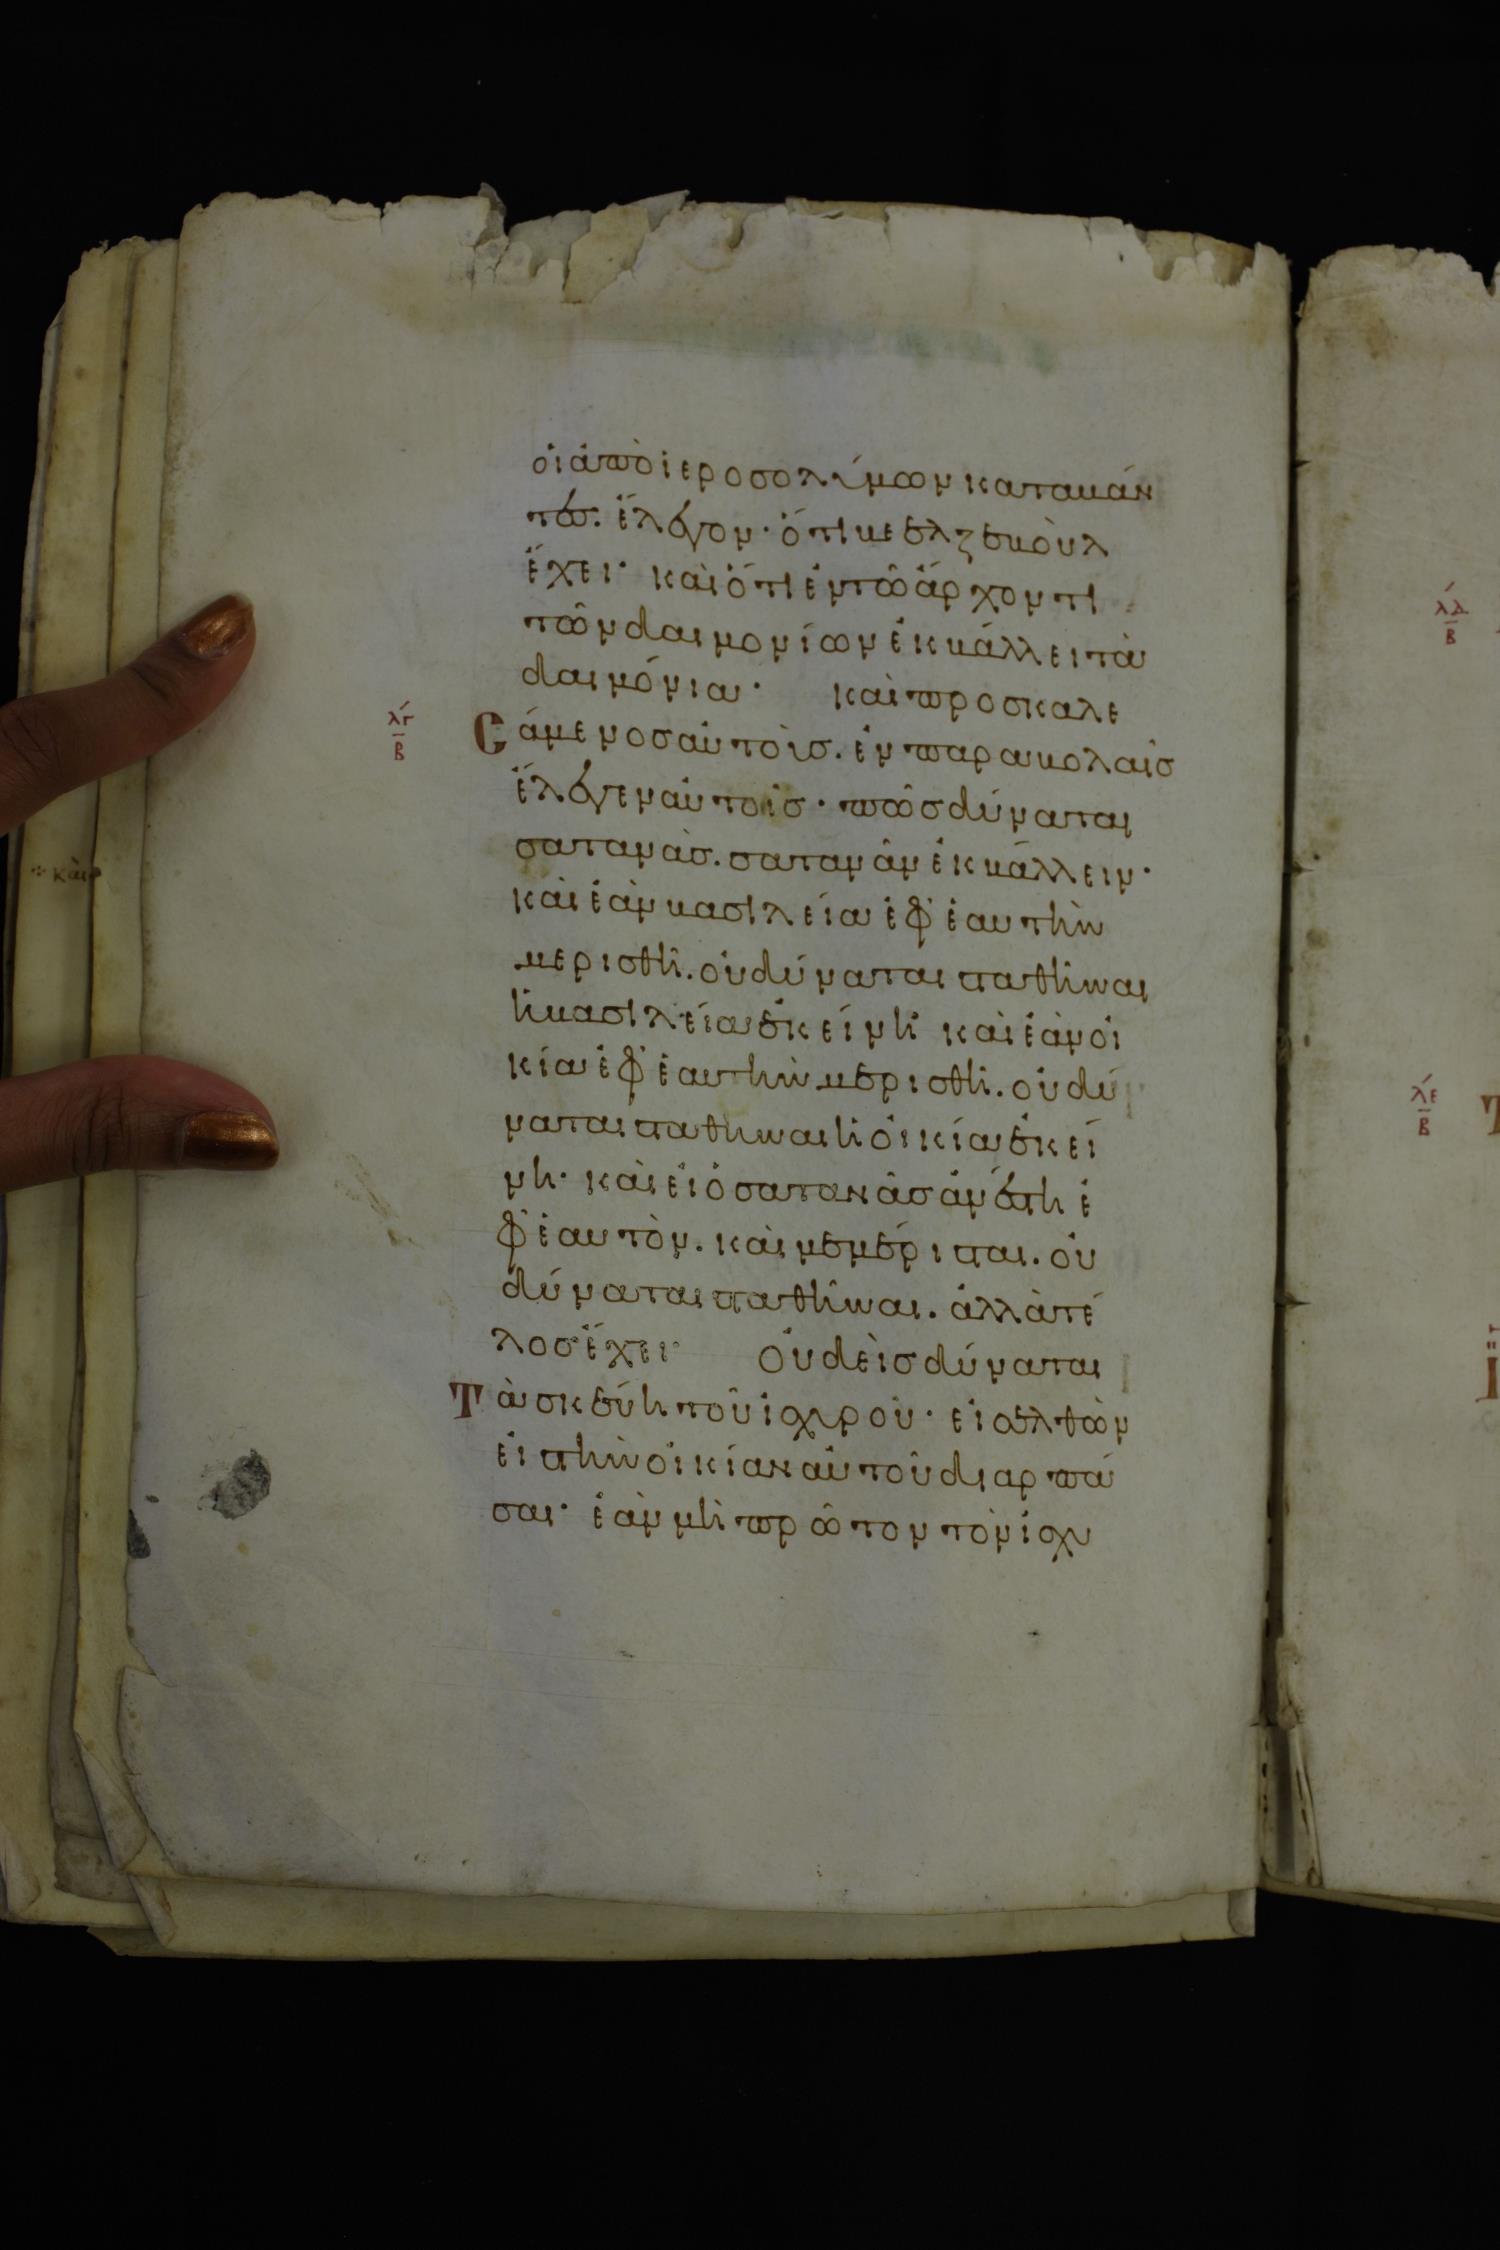 οἱ ἀπὸ ἱεροσολύμων καταβάν
τες. ἔλεγον· ὅτι βεελζεβοὺλ
ἔχει· καὶ ὅτι ἐν τῶ ἄρχοντι
τῶν δαιμονίων ἐκβάλλει τὰ
δαιμόνια· καὶ προσκαλε
λγ
β
Cάμενος αὐτοὺς. ἐν παραβολαῖς
ἔλεγεν αὐτοῖς· πῶς δύναται
σατανὰς. σατανᾶν ἐκβάλλειν·
καὶ ἐὰν βασιλεία ἐφ' ἑαυτὴν
μερισθῆ. οὐ δύναται σταθῆναι
ἡ βασιλεία ἐκείνη καὶ ἐὰν οἰ
κία ἐφ' ἑαυτὴν μερισθῆ. οὐ δύ
ναται σταθῆναι ἡ οἰκία ἐκεί
νη· καὶ εἰ ὁ σατανᾶς ἀνέστη ἐ
φ' ἑαυτὸν. καὶ μεμέρισται. οὐ
δύναται σταθῆναι. ἀλλὰ τέ
λος ἔχει· Οὐδεὶς δύναται
Τὰ σκεύη τοῦ ἰσχυροῦ· εἰσελθὼν
εἰς τὴν οἰκίαν αὐτοῦ διαρπά
σαι· ἐὰν μὴ πρῶτον τὸν ἰσχυ
καὶ
λδ
β
λε
β
Τ